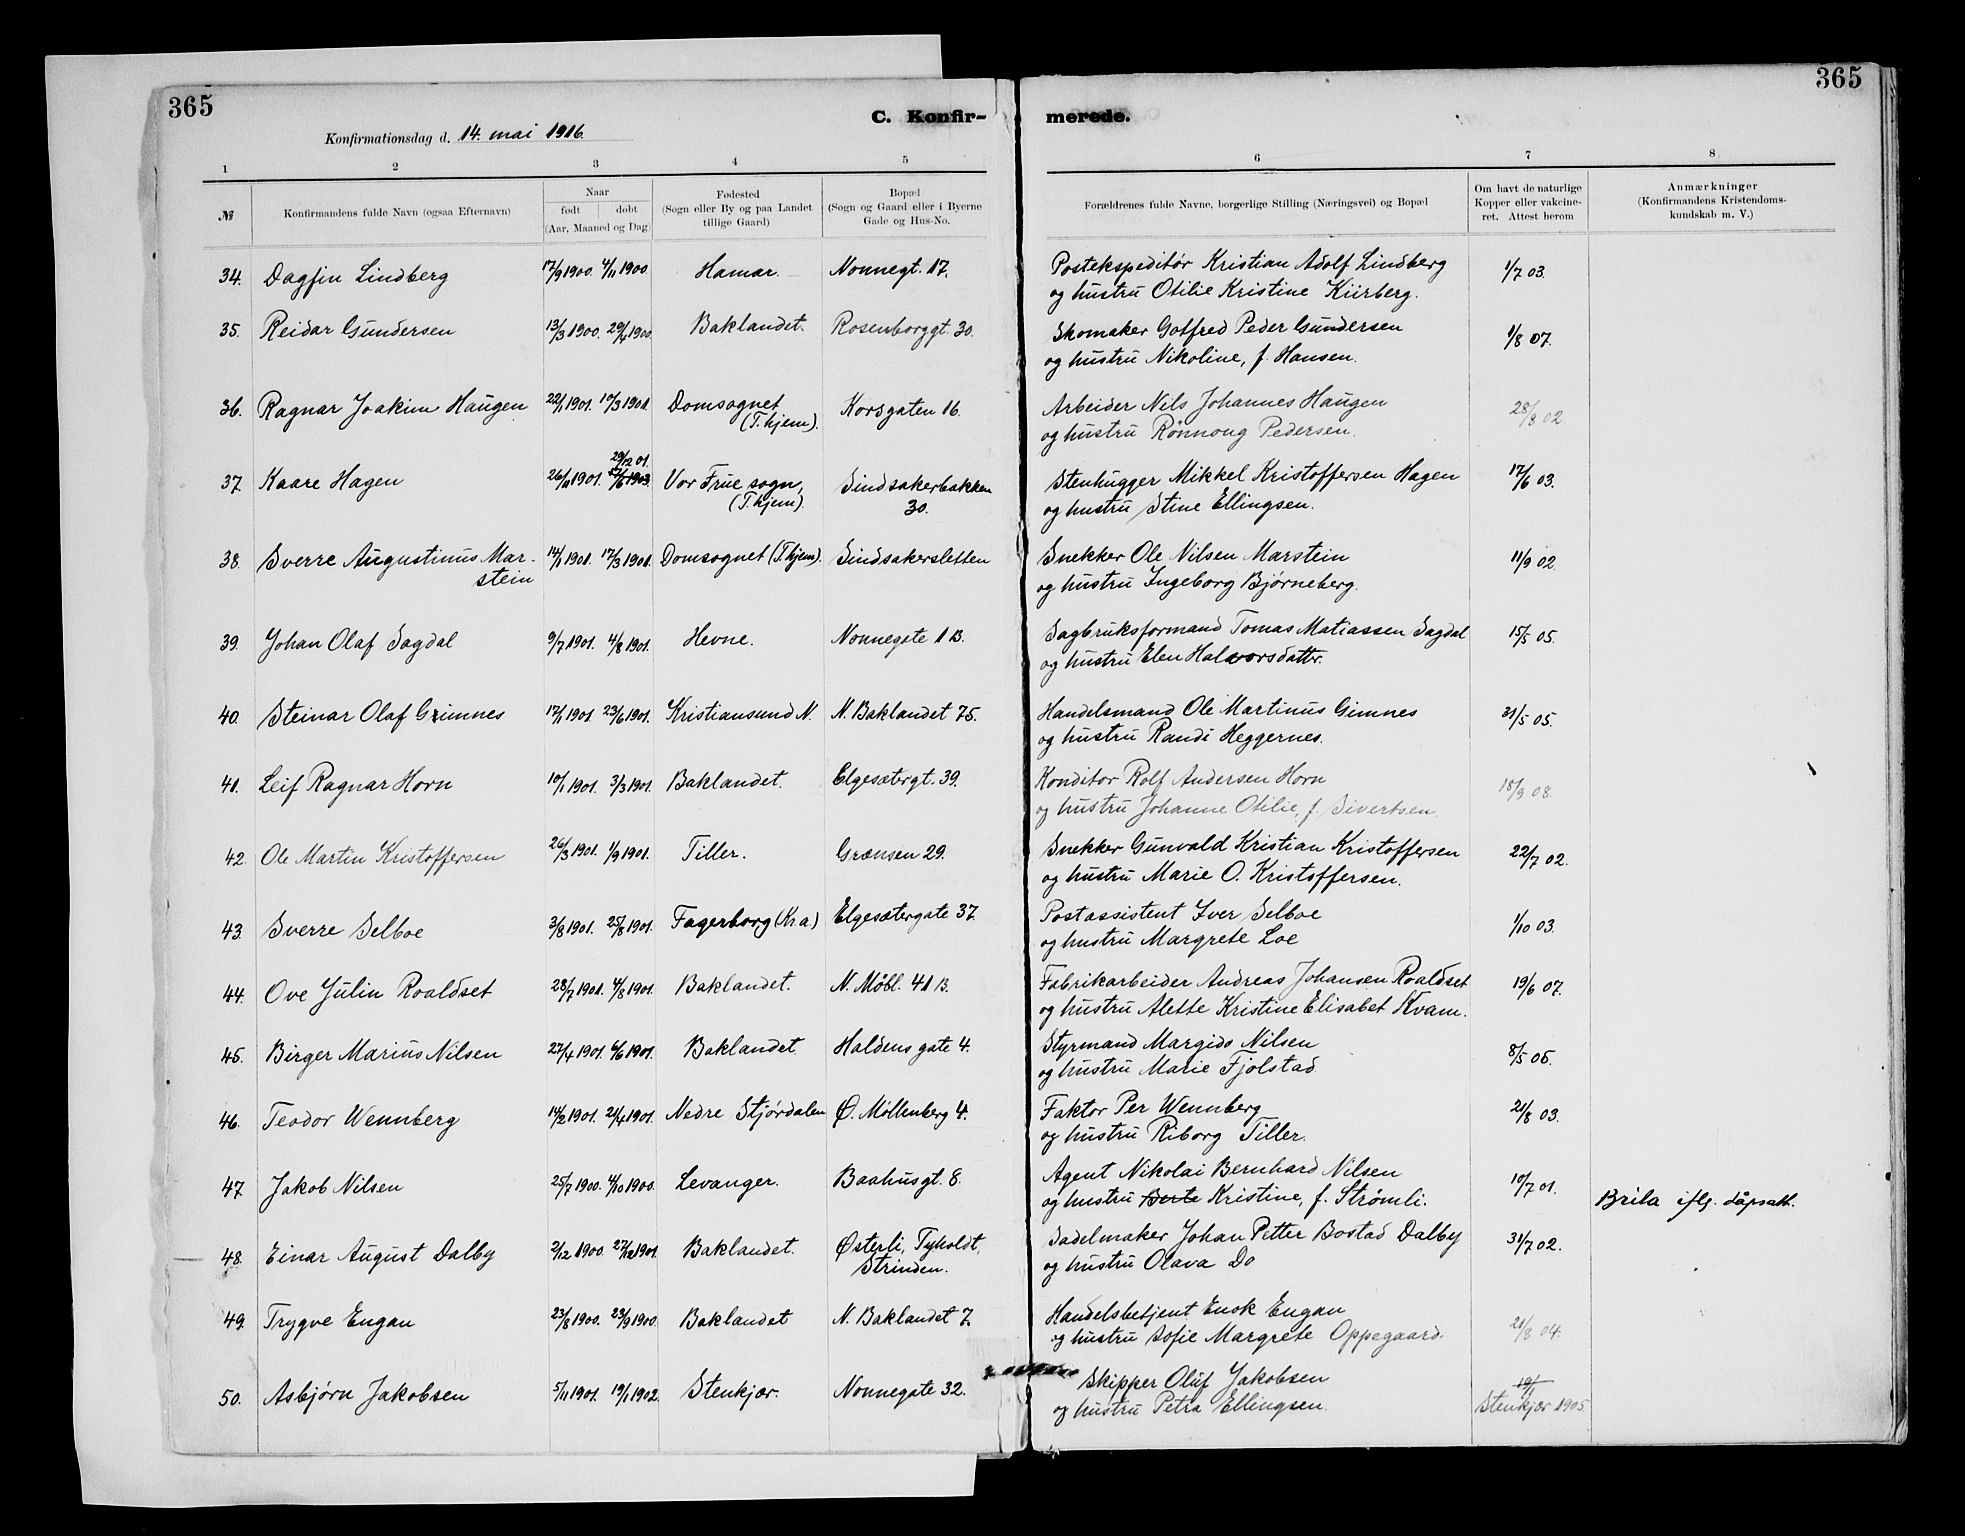 365
365
C. Konfir-
merede.
Konfirmationsdag d. 14. mai 1916.
1 2 3 4 5 6 7 8
№
Konfirmandens fulde Navn (ogsaa Efternavn)
Naar
født døbt
(Aar, Maaned og Dag)
Fødested
(Sogn eller By og paa Landet
tillige Gaard)
Bopæl
(Sogn og Gaard eller i Byerne
Gade og Hus-No.
Forældrenes fulde Navne, borgerlige Stilling (Næringsvei) og Bopæl
Om havt de naturlige
Kopper eller vakcine-
ret. Attest herom
Anmærkninger
(Konfirmandens Kristendoms-
kundskab m. V.)
34. Dagfin Lindberg 17/9 1900. 4/11 1900. Hamar. Nonnegt. 17. Postekspeditør Kristian Adolf Lindberg 1/7 03.
og hustru Otilie Kristine Kiirberg.
35. Reidar Gundersen 13/3 1900. 29/4 1900. Baklandet. Rosenborggt. 30. Skomaker Gotfred Peder Gundersen 1/8 07.
og hustru Nikoline, f. Hansen.
36. Ragnar Joakim Haugen 22/1 1901. 10/3 1901. Domsognet Korsgaten 16. Arbeider Nels Johannes Haugen 28/8 02.
(T.hjem). og hustru Rønnoug Pedersen.
29/12 01.
37. Kaare Hagen 26/11 1901. Vor Frue sogn, Sindsakerbakken Stenhugger Mikkel Kristoffersen Hagen 17/6 03.
(T.hjem). 30. og hustru Stine Ellingsen.
38. Sverre Augustinus Mar- 14/1 1901. 17/3 1901. Domsognet (T.hjem). Sindsakersletten Snekker Ole Nilsen Marstein 11/9 02.
stein og hustru Ingeborg Bjørneberg.
39. Johan Olaf Sagdal 9/7 1901. 4/8 1901. Hevne. Nonnegate 1 B. Sagbruksformand Tomas Matiassen Sagdal 15/5 05.
og hustru Elen Halvorsdatter.
40. Steinar Olaf Gimnes 17/1 1901. 23/6 1901. Kristiansund N. N. Baklandet 75. Handelsmand Ole Martinus Gimnes 31/5 05.
og hustru Randi Heggernes.
41. Leif Ragnar Horn 10/1 1901. 3/3 1901. Baklandet. Elgesætergt. 39. Konditor Rolf Andersen Horn 18/9 08.
og hustru Johanne Otilie, f. Sivertsen.
42. Ole Martin Kristoffersen 26/3 1901. 1/9 1901. Tiller. Grænsen 29. Snekker Gunvald Kristian Kristoffersen 22/7 02.
og hustru Marie O. Kristoffersen.
43. Sverre Selboe 3/8 1901. 25/8 1901. Fagerborg (Kr.a) Elgesætergate 37. Postassistent Iver Selboe 1/10 03.
og hustru Margrete Loe
44. Ove Julin Roaldset 28/7 1901. 4/8 1901. Baklandet. N. Møbl. 41 B. Fabrikarbeider Andreas Johansen Roaldset 19/6 07.
og hustru Alette Kristine Elisabet Kvam.
45. Birger Marius Nilsen 27/4 1901. 6/6 1901. Baklandet. Haldens gate 4. Styrmand Margido Nilsen 8/5 05.
og hustru Marie Fjølstad
46. Teodor Wennberg 14/2 1901. 21/4 1901. Nedre Stjørdalen Ø. Møllenberg 4. Faktor Per Wennberg 21/8 03.
og hustru Riborg Tiller.
47. Jakob Nilsen 25/7 1900. 4/10 1900. Levanger. Baahusgt. 8. Agent Nikolai Bernhard Nilsen 10/7 01.
og hustru Berte Kristine, f. Strømli. Brita iflg. dåpsatt.
48. Einar August Dalby 2/12 1900. 27/12 1901. Baklandet. Østerli, Tyholdt, Sadelmaker Johan Petter Bostad Dalby 31/7 02.
Strinden. og hustru Olava Do
49. Trygve Engan 23/8 1900. 23/9 1900. Baklandet N. Baklandet 7. Handelsbetjent Enok Engan 21/8 04.
og hustru Sofie Margrete Oppegaard.
50. Asbjørn Jakobsen 5/11 1901. 19/1 1902. Stenkjær. Nonnegate 32. Skipper Oluf Jakobsen 19/1
og hustru Petra Ellingsen. Stenkjær 1905.